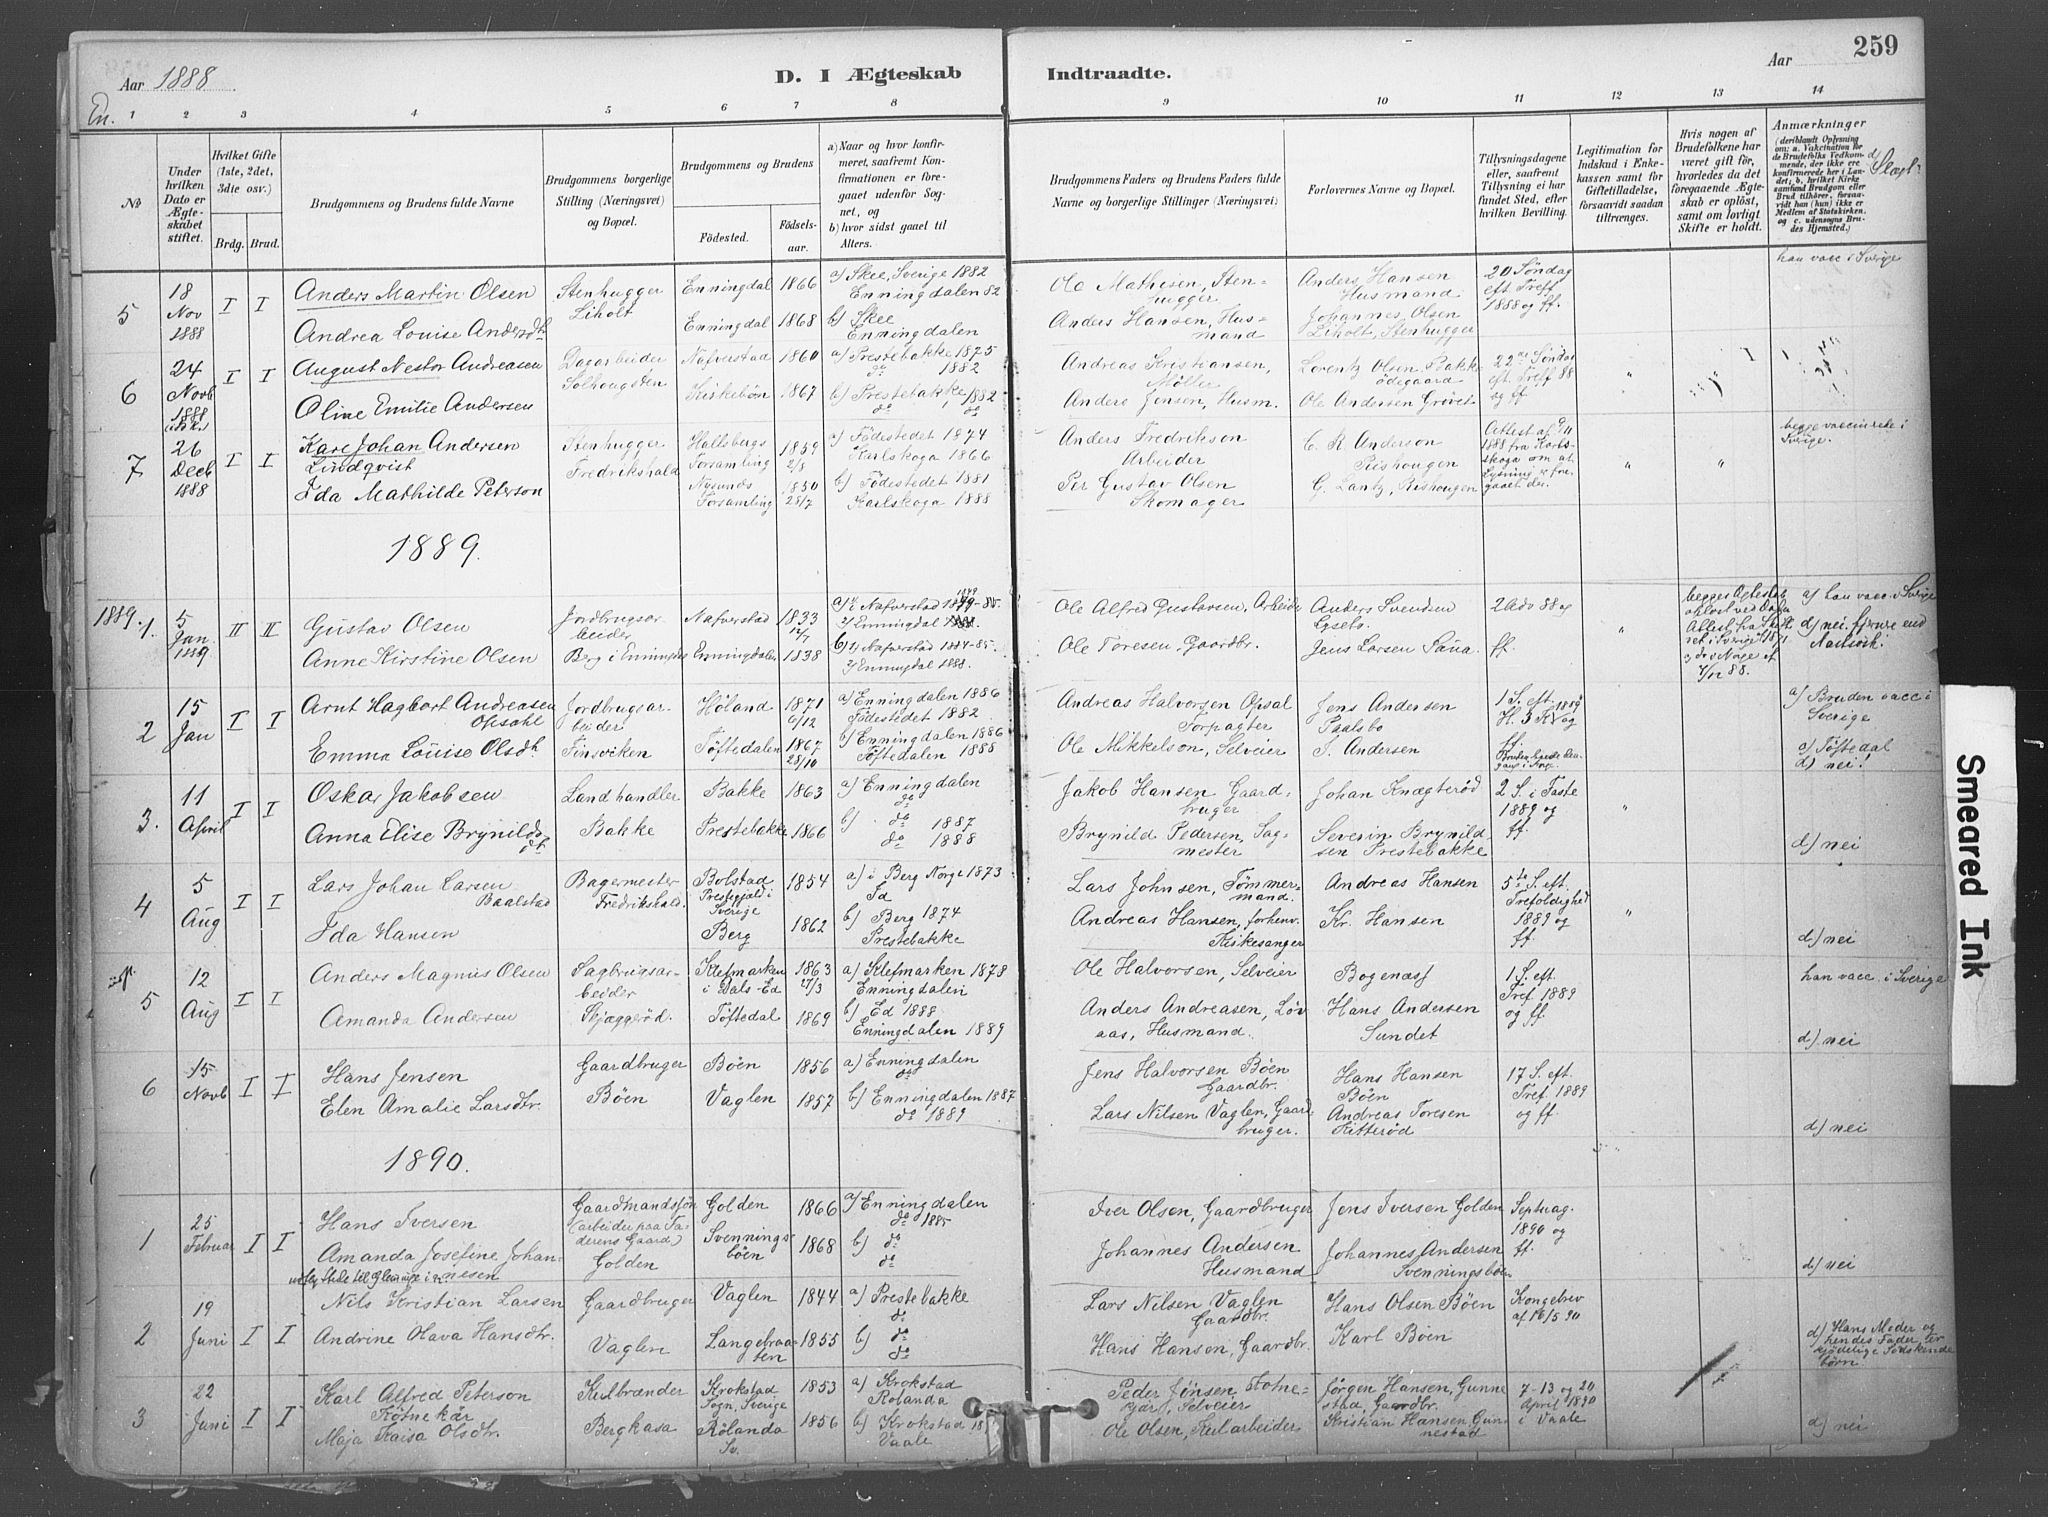 259
Aar 1888.
D. I Ægteskab Indtraadte.
Aar
En.
1 2 3 4 5 6 7 8 9 10 11 12 13 14
No
Under hvilken Dato er Ægteskabet stiftet.
Hvilket Gifte (1ste, 2det, 3die osv.)
Brdg. Brud.
Brudgommens og Brudens fulde Navne
Brudgommens borgerlige Stilling (Næringsvei) og Bopæl.
Brudgommens og Brudens
Fødested. Fødselsaar.
a) Naar og hvor konfirmeret, saafremt Konfirmationen er foregaaet udenfor Sognet, og
b) hvor sidst gaaet til Alters.
Brudgommens Faders og Brudens Faders fulde Navne og borgerlige Stillinger (Næringsvei)
Forlovernes Navne og Bopæl.
Tillysningsdagene eller, saafremt Tillysning ei har fundet Sted, efter hvilken Bevilling.
Legitimation for Indskud i Enkekassen samt for Giftetilladelse, forsaavidt saadan tiltrænges.
Hvis nogen af Brudefolkene har været gift før, hvorledes da det foregaaende Ægteskab er opløst, samt om lovligt Skifte er holdt.
Anmærkninger (deriblandt Oplysning om: a. Vakcination for de Brudefolks Vedkommende, der ikke ere konfirmerede her i Landet; b. hvilket Kirkesamfund Brudgom eller Brud tilhører, forsaavidt han (hun) ikke er Medlem af Statskirken, og c. udensogns Brudes Hjemsted.)
d) Slægt-
5
18 Nov 1888
I I
Anders Martin Olsen
Andrea Louise Andersdt.
Stenhugger
Liholt
Enningdal 1866
Enningdal 1868
a) Skee, Sverige 1882
Enningdalen 82
b) Skee
Enningdalen
Ole Mathesen, Stenhugger
Anders Hansen, Husmand
Anders Hansen
Husmand
Johannes Olsen
Liholt, Stenhugger
20 Søndag eft Treff 1888 og ff.
han vacc i Sverige
6
24 Novb 1888
I I
August Nestor Andreasen
Oline Emilie Andersen
Dagarbeider
Solhougsten
Nafverstad 1860
Kirkebøn 1867
a) Prestebakke 1875
do 1882
b) Prestebakke, 1882
do do
Andreas Kristiansen, Møller
Anders Jensen, Husm.
Lorentz Olsen Bakke
ødegaard
Ole Andersen Grøvet
22de Søndag eft. Treff 88 og ff
"
7
26 Decb 1888
I I
Karl Johan Andersen
Lindqvist
Ida Mathilde Peterson
Stenhugger
Fredrikshald
Hallsbergs Forsamling 1859 2/8
Nysunds Forsamling 1850 28/7
a) Fødestedet 1874
Karlskoga 1866
b) Fødestedet 1881
Karlskoga 1888
Anders Fredrikson
Arbeider
Per Gustav Olsen
Skomager
C. R. Anderson
Rishougen
G. Lantz, Rishougen
Attest af 9/11 1888 fra Karlskoga om at Lysning er foregaaet der.
" "
begge vaccinerede i Sverige.
1889.
1889. 1.
5 Jan. 1889
II II
Gustav Olsen
Anne Kirstine Olsen
Jordbrugsarbeider
Berg i Enningda
Nafverstad 1833
Enningdalen 1838
Ole Alfred Gustavsen, Arbeide
Ole Toresen, Gaardbr.
Anders Svendsen
Jens Larsen Sana.
2 Adv 88 og ff.
"
a) han vacc. i Sverige
d) nei.
2
15 Jan
I I
Arnt Hagbart Andreasen
Opsahl
Emma Louise Olsdt.
Jordbrugsarbeider
Finsviken
Høland 1871 6/12
Tøftedalen 1867 28/10
a) Enningdalen 1886
Fødestedet 1882
b) Enningdalen 1886
Tøftedalen 1888
Andreas Halvorsen Opsal
Forpagter
Ole Mikkelson, Selveier
Jens Andersen
Paalsbo
J. Andersen
1 S. eft. H. 3 K 1889 og ff.
a) Bruden vacc i Sverige
c) Tøftedal
d) nei!
3.
11 April
I I
Oskar Jakobsen
Anna Elise Brynildsdt
Landhandler
Bakke
Bakke 1863
Prestebakke 1866
a) Enningdalen
do
b) do 1887
do 1888
Jakob Hansen Gaardbruger
Brynild Pedersen, Sagmester
Johan Knægterød
Severin Brynildsen Prestebakke
2 S. i Faste 1889 og ff.
"
d) nei
4
5 Aug
I I
Lars Johan Larsen
Baalstad
Ida Hansen
Bagermester
Fredrikshald.
Bolstad Prestegjeld i Sverige 1854
Berg 1862
a) i Berg Norge 1873
Id
b) Berg 1874
Prestebakke
Lars Johnsen, Tømmermand.
Andreas Hansen, forhenv.
Kirkesanger
Andreas Hansen
Kr. Hansen
5te S. eft. Trefoldighed 1889 og ff.
"
d) nei
5
12 Aug
I I
Anders Magnus Olsen
Amanda Andersen
Sagbrugsarbeider
Skjæggerød.
Klefmarken i Dals-Ed 1863 27/3
Tøftedal 1869
a) Klefmarken 1878
Enningdalen
b) Ed 1888
Enningdalen 1889
Ole Halvorsen, Selveier
Anders Andreasen, Løvaas, Husmand.
Bogenæsf
Hans Andersen
Sundet
1 S. eft. Tref. 1889 og ff.
han vacc. i Sverige
d) nei
6
15 Novb
I I
Hans Jensen
Elen Amalie Larsdtr.
Gaardbruger
Bøen
Bøen 1856
Vaglen 1857
a) Enningdalen
do
b) Enningdalen 1887
do 1889
Jens Halvorsen Bøen
Gaardbr.
Lars Nilsen Vaglen, Gaardbruger.
Hans Hansen
Bøen
Andreas Toresen
Kitterød
17 S. eft. Tref 1889 og ff.
d) nei
1890.
1
25 Februar
I I
Hans Iversen
Amanda Josefine Johannesen
Gaardmandssøn
(arbeider paa Faderens Gaard)
Golden
Golden 1866
Svenningsbøen 1868
a) Enningdalen
do 1885
b) do
do
Iver Olsen, Gaardbruger
Johannes Andersen
Husmand
Jens Iversen Golden
Johannes Andersen
Svenningsbøen
Septuag. 1890 og ff.
d) nei
2
19 Juni
I I
Nils Kristian Larsen
Andrine Olava Hansdtr.
Gaardbruger
Vaglen
Vaglen 1844
Langebraaten 1855
a) Prestebakke
do
b) do
do
Lars Nilsen Vaglen
Gaardbr.
Hans Hansen, Gaardbr.
Hans Olsen Bøen
Karl Bøen
Kongebrev af 16/5 90
d) Hans Moder og hendes Fader er kjødelige Sødskendebørn.
3
22 Juni
I I
Karl Alfred Peterson
Maja Kaisa Olsdtr.
Kulbrænder
Bergkasa
Krokstad Sogn, Sverige 1853
Rölanda Sv. 1856
a) Krokstad
Rolanda
b) Krokstad 18
Vaale
Peder Jönsen
Selveier
Ole Olsen, Kularbeider
Jørgen Hansen, Gunnestad, Gaardbr.
Kristian Hansen, Gunnestad
7-13 og 20 April 1890 i Vaale
d) nei
Smeared Ink